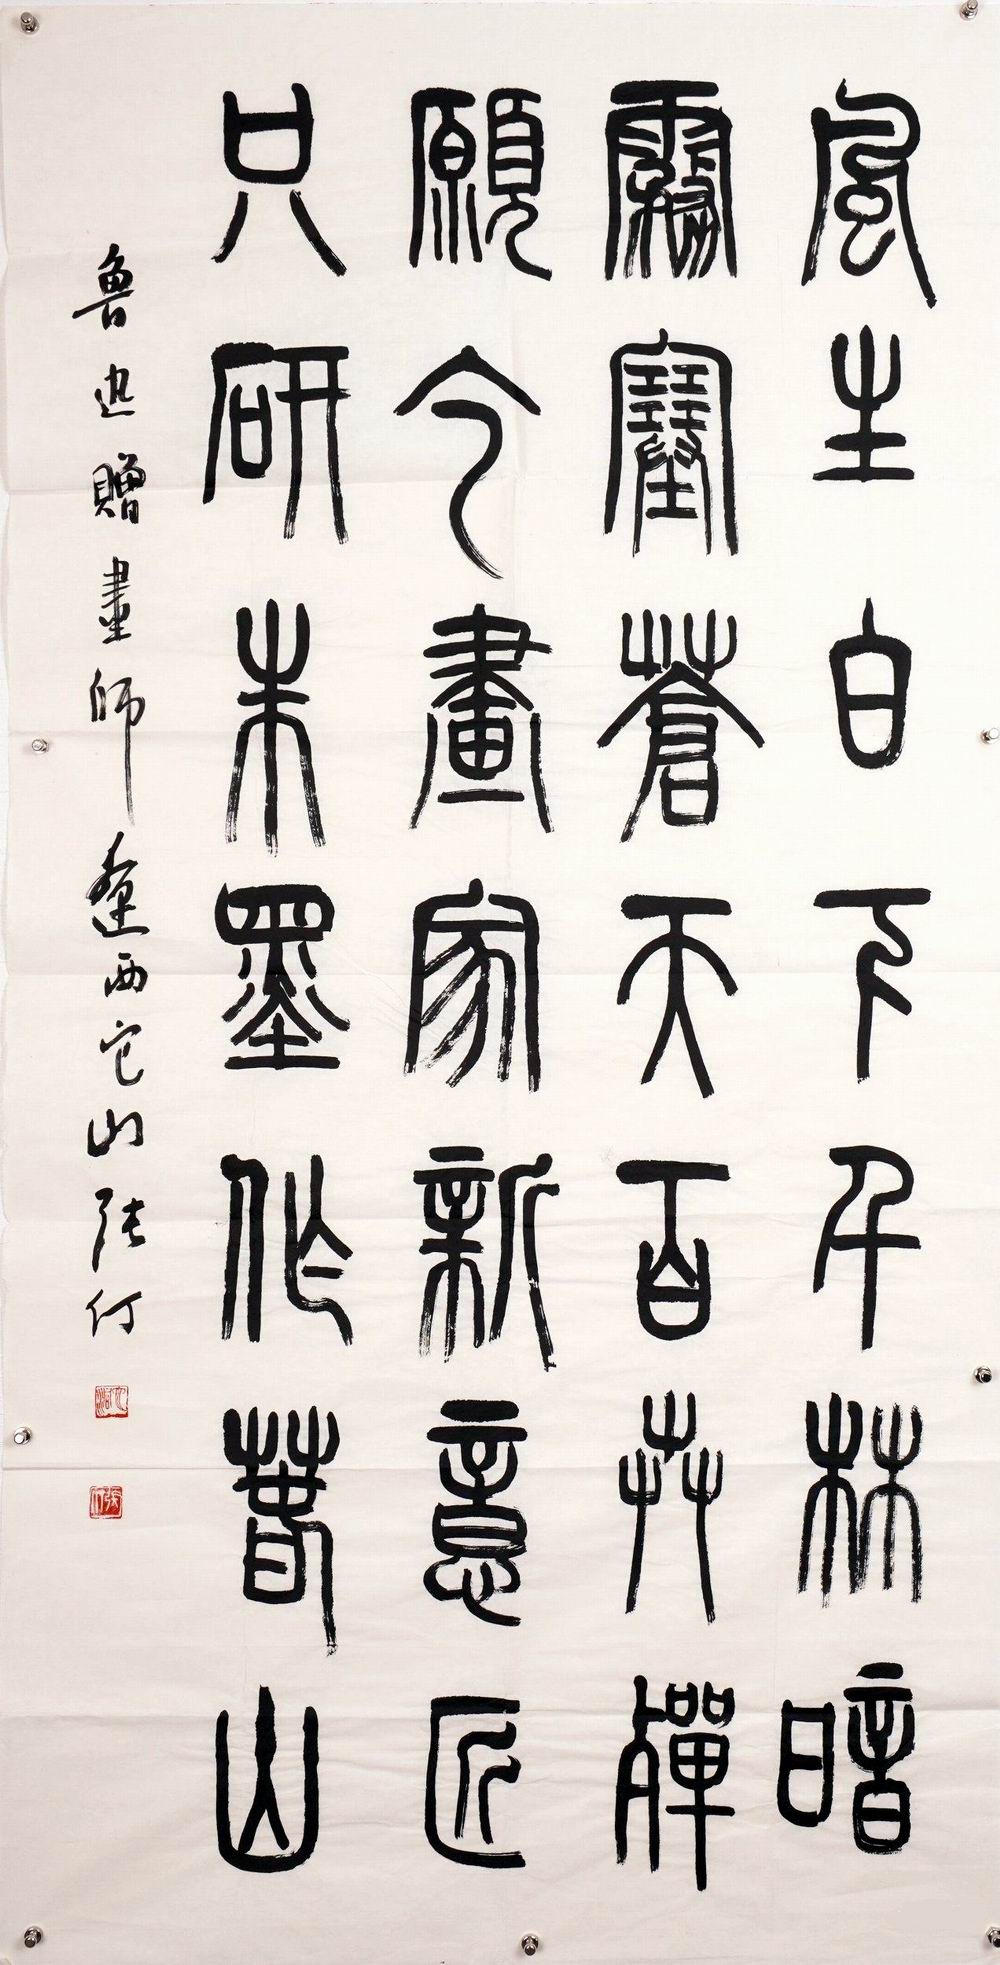 風生白下千林暗
霧塞蒼天百卉殫
願乞畫家新意匠
只研朱墨作春山
魯迅贈畫師 遼西它山張仃
張仃